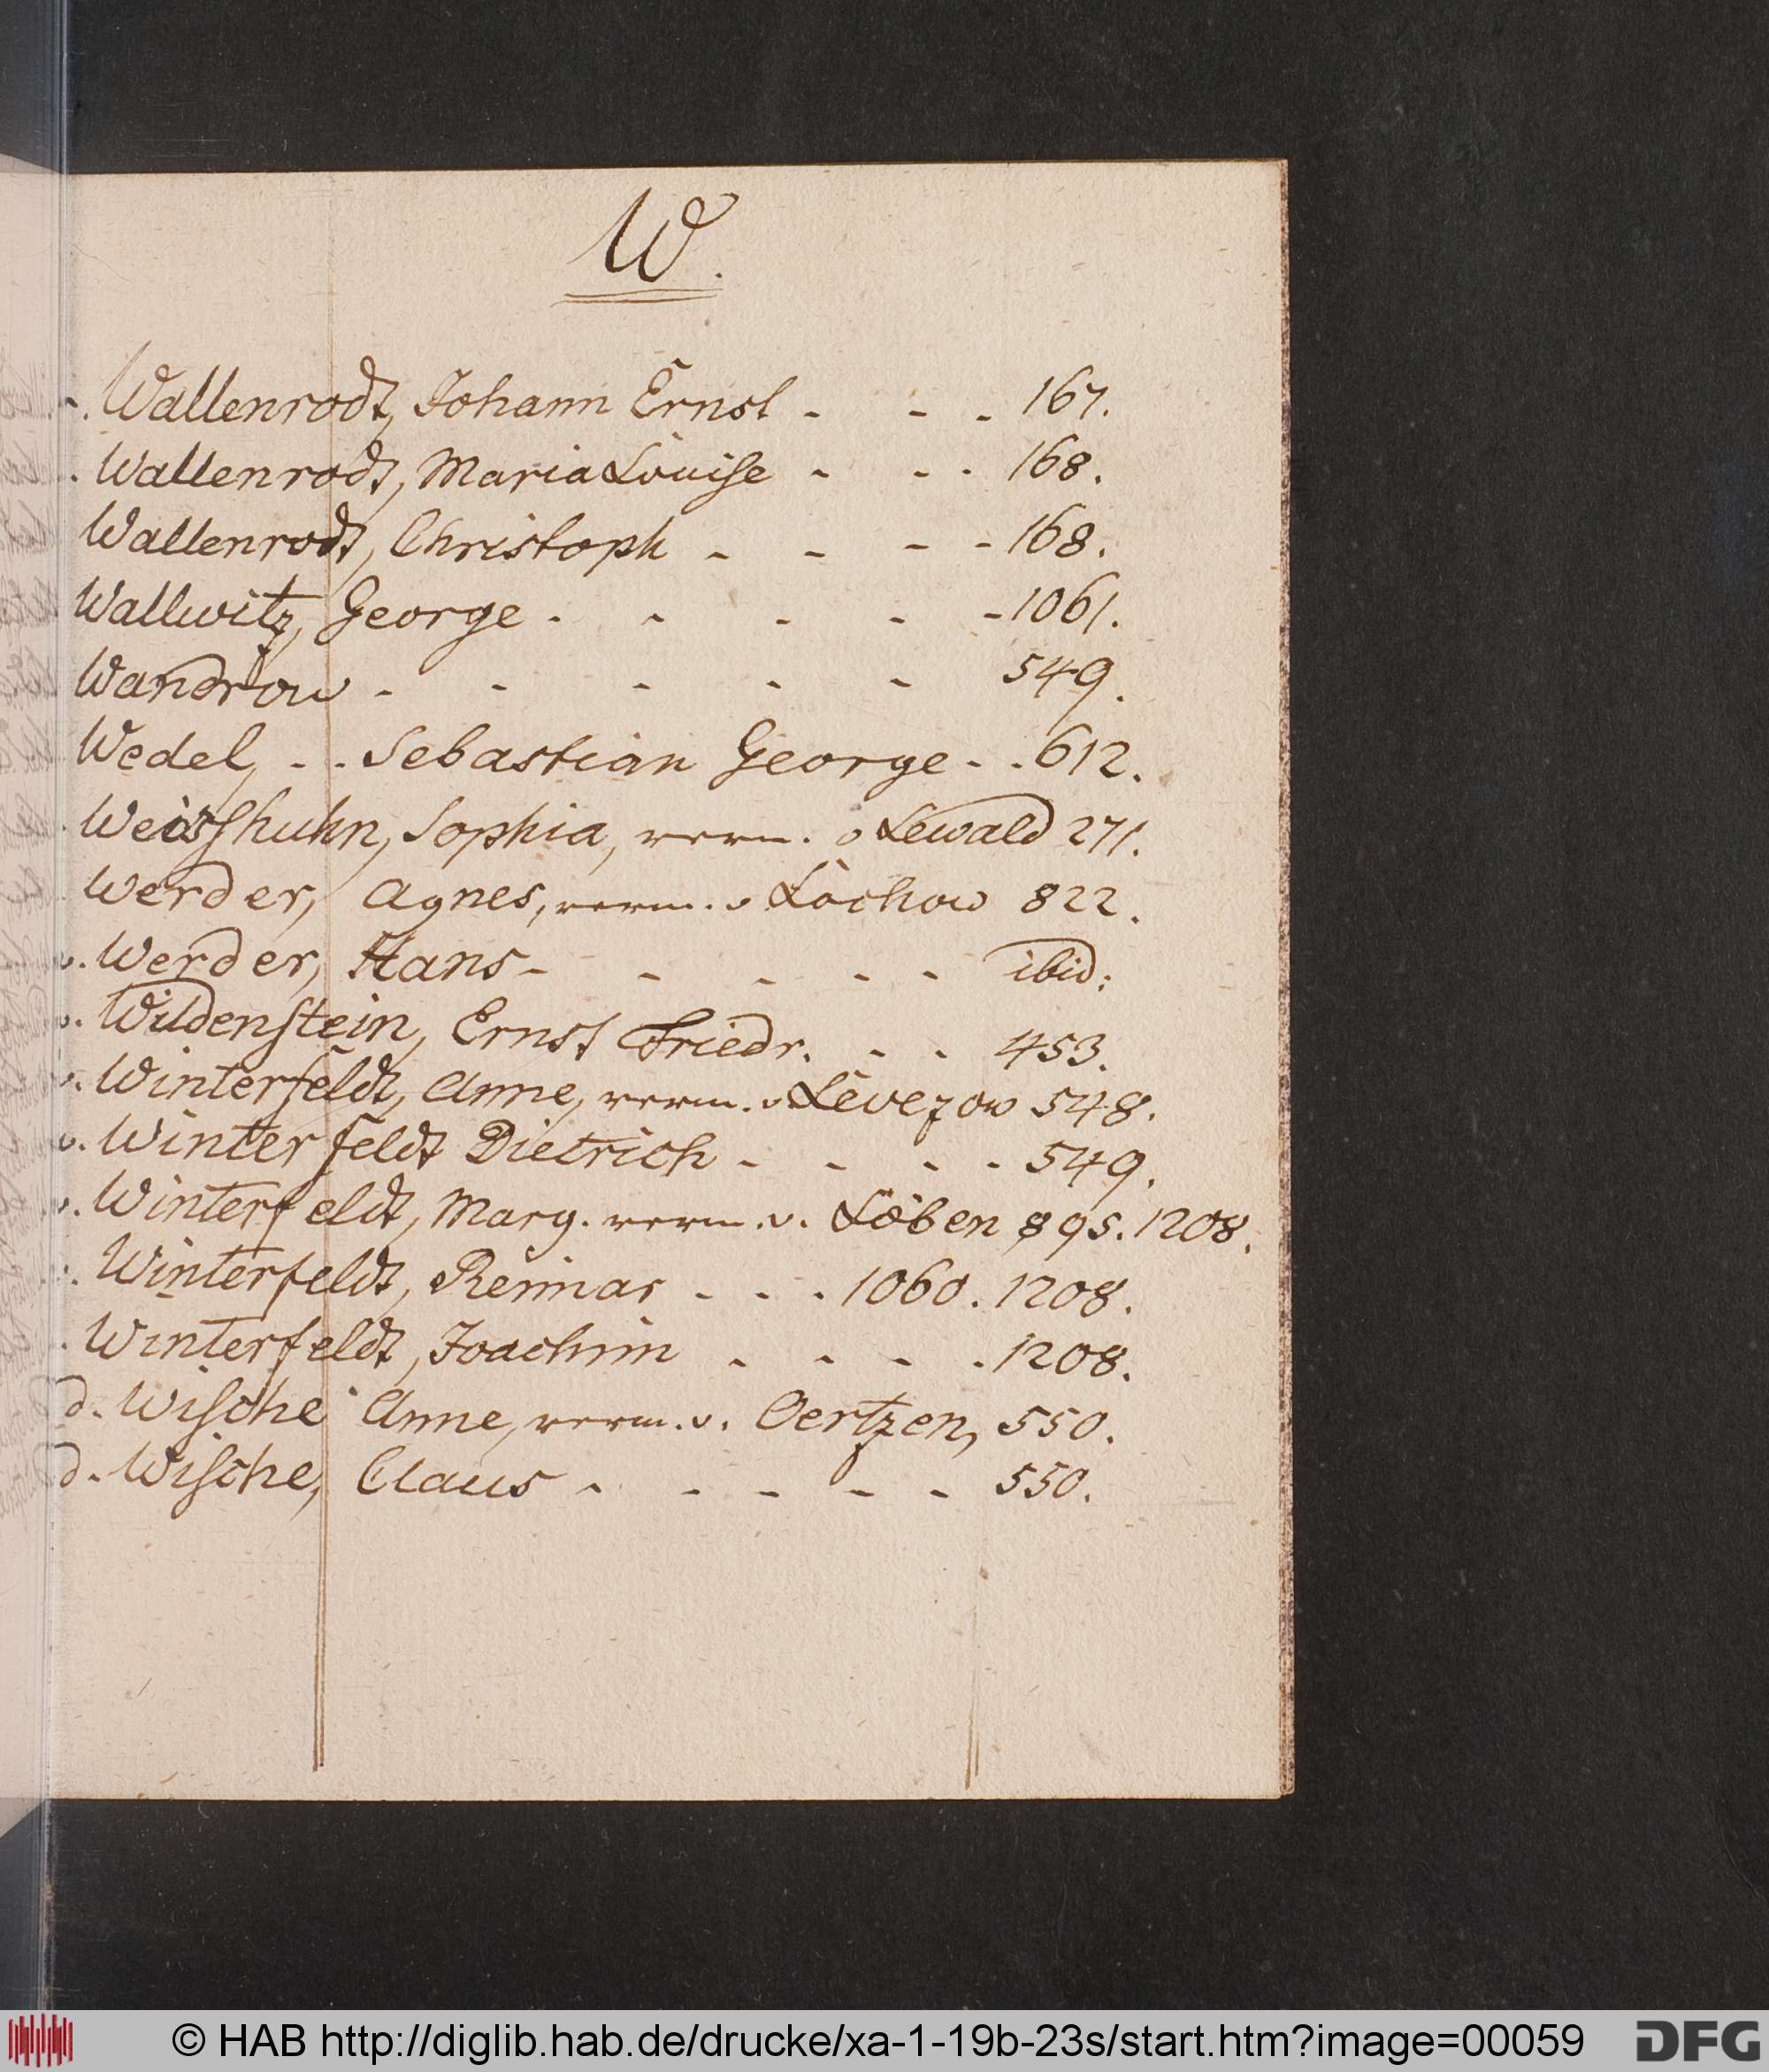 W.
v. Wallenrodt, Johann Ernst - - - 167.
. Wallenrodt, Maria Louise - - - 168.
Wallenrodt, Christoph - - - - 168.
Wallwitz, George - - - - - 1061.
Wandrow - - - - - 549.
Wedel, - - Sebastian George - - 612.
Weisshuhn, Sophia, verm. v Lewald 271.
Werder, Agnes, verm. v Lochow 822.
v. Werder, Hans - - - - - ibid:
v. Wildenstein, Ernst Friedr. - - 453.
v. Winterfeldt, Anne, verm. v. Levezow 548.
v. Winterfeldt Dietrich - - - - 549.
v. Winterfeldt, Marg. verm. v. Löben 895. 1208.
v. Winterfeldt, Reimar - - - 1060. 1208.
. Winterfeldt, Joachim - - - - 1208.
d. Wische Anne, verm. v. Oertzen, 550.
d. Wische, Claus - - - - - 550.
© HAB http://diglib.hab.de/drucke/xa-1-19b-23s/start.htm?image=00059
DFG